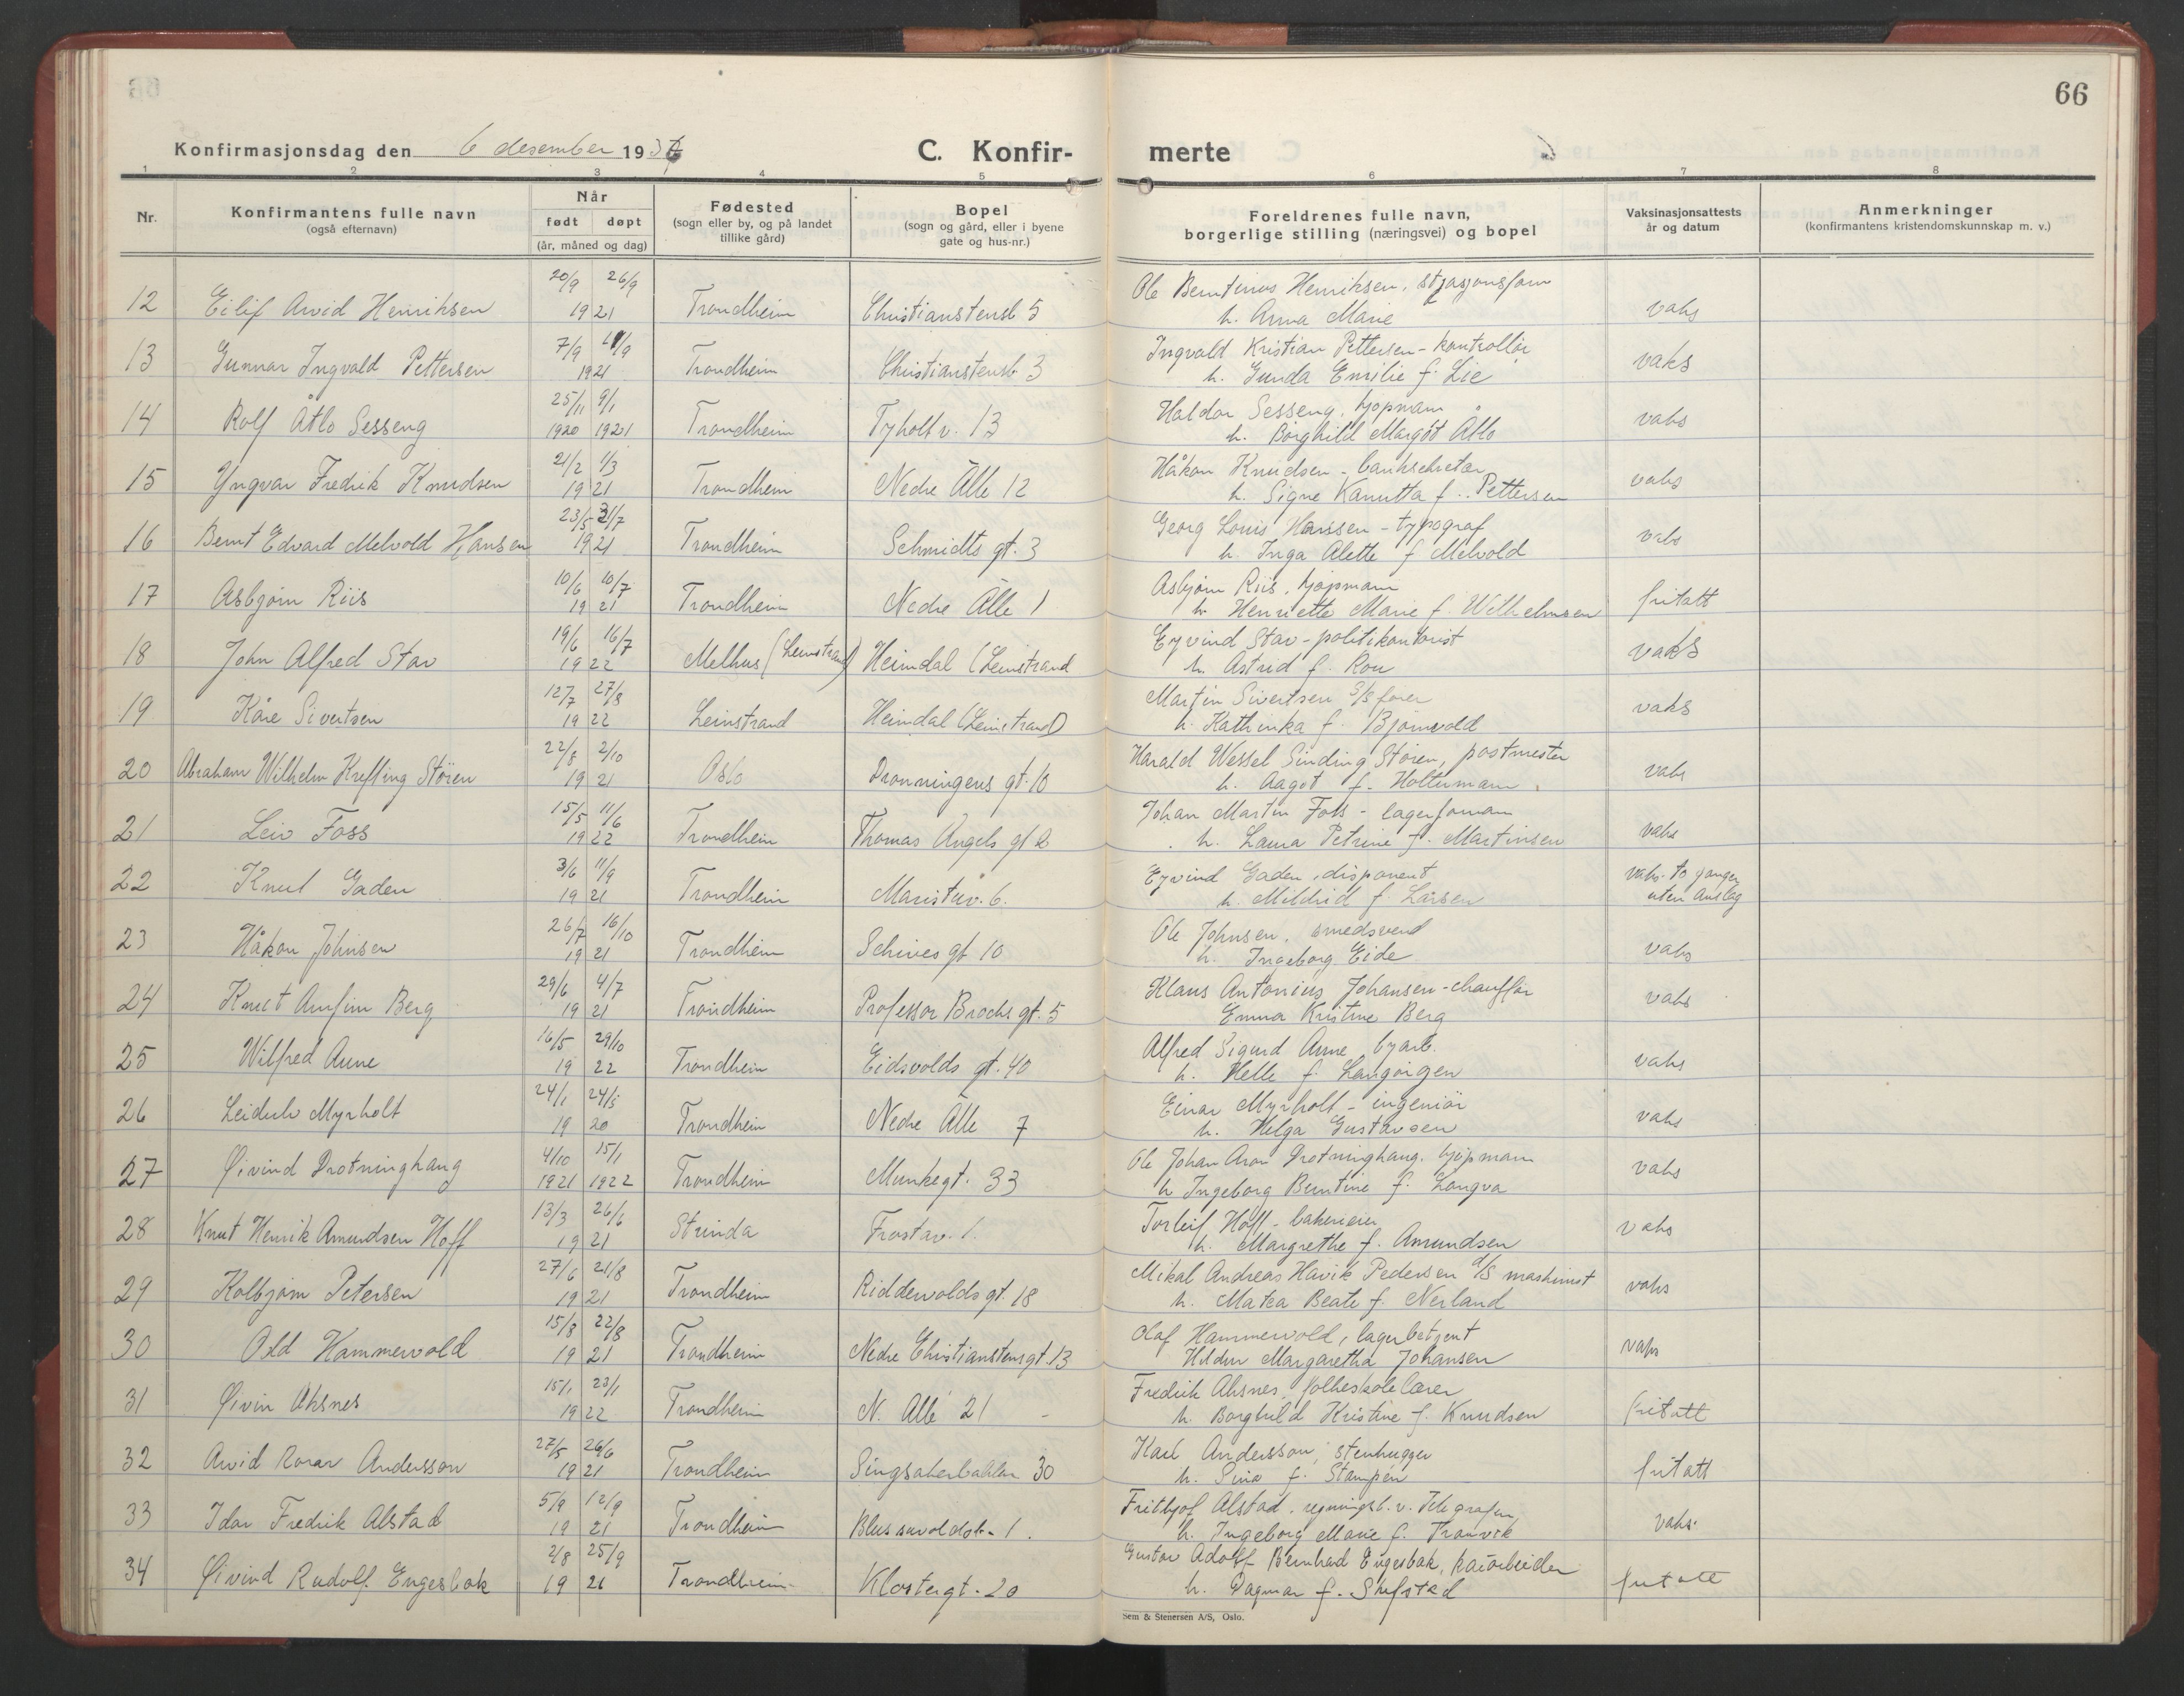 66
Konfirmasjonsdag den 6 desember 1936
C. Konfirmerte
1 2 3 4 5 6 7 8
Nr.
Konfirmantens fulle navn
(også efternavn)
Når
født døpt
(år, måned og dag)
Fødested
(sogn eller by, og på landet
tillike gård)
Bopel
(sogn og gård, eller i byene
gate og hus-nr.)
Foreldrenes fulle navn,
borgerlige stilling (næringsvei) og bopel
Vaksinasjonsattests
år og datum
Anmerkninger
(konfirmantens kristendomskunnskap m. v.)
20/9 26/9 Ole Berntinus Henriksen,
12 Eilif Arvid Henriksen 1921 Trondheim Christianstensb 5 h. Anna Marie vaks
7/9 11/9 Ingvald Kristian Pettersen - kontrollør
13 Gunnar Ingvald Pettersen 1921 Trondheim Christianstensb 3 h. Gunda Emilie f. Lie vaks
25/11 9/1 Haldor Sesseng, kjøpmann
14 Rolf Åtlo Sesseng 1920 1921 Trondheim Tyholtv. 13 h. Borghild Margot Åtlo vaks
21/2 1/3 Håkon Knudsen - banksekretær
15 Yngvar Fredrik Knudsen 1921 Trondheim Nedre Alle 12 h. Signe Kanutta f. Pettersen vaks
23/5 31/7 Georg Louis Hanssen - typograf
16 Bernt Edvard Melvold Hansen 1921 Trondheim Schmidts gt. 3 h. Inga Alette f Melvold vaks
10/6 10/7 Asbjørn Riis, kjøpmann
17 Asbjørn Riis 1921 Trondheim Nedre Alle 1 h. Henriette Marie f. Wilhelmsen fritatt
19/6 16/7 Eyvind Stav - politikontorist
18 John Alfred Stav 1922 Melhus (Leinstrand) Heimdal (Leinstrand h. Astrid f. Rou vaks
12/7 27/8 Martin Sivertsen S/S fører
19 Kåre Sivertsen 1922 Leinstrand Heimdal (Leinstrand) h. Kathinka f. Bjørnvold vaks
22/8 2/10 Harald Wessel Sinding Støren, postmester
20 Abraham Wilhelm Krefting Støren 1921 Oslo Dronningens gt. 10 h. Aagot f. Holtermann vaks
15/5 11/6 Johan Martin Foss - lagerformann
21 Leiv Foss 1922 Trondheim Thomas Angels gt 2 h. Laura Petrine f. Martinsen vaks
3/6 11/9 Eyvind Gaden, disponent vaks to ganger
22 Knut Gaden 1921 Trondheim Maristuv. 6. h. Mildrid f. Larsen uten anslag
26/7 16/10 Ole Johnsen, smedsvend
23 Håkon Johnsen 1921 Trondheim Schives gt 10 h. Ingeborg Eide vaks
29/6 4/7 Klaus Antonius Johansen - chauffør
24 Knut Arnfinn Berg 1921 Trondheim Professor Brochs gt. 5 Emma Kristine Berg vaks
16/5 29/10 Alfred Sigurd Aune byarb.
25 Wilfred Aune 1922 Trondheim Eidsvolds gt. 40 h. Helle f. Langørgen vaks
24/1 24/5 Einar Myrholt - ingeniør
26 Leidulv Myrholt 1920 Trondheim Nedre Alle 7 h. Helga Gustavsen vaks
4/10 15/1 Ole Johan Aron Drotninghaug. kjøpmann
27 Øivind Drotninghaug 1921 1922 Trondheim Munkegt. 33 h Ingeborg Berntine f. Langva vaks
13/3 26/6 Torleif Hoff - bakerieier
28 Knut Henrik Amundsen Hoff 1921 Strinda Frostav. 1. h. Margrethe f. Amundsen vaks
27/6 21/8 Mikal Andreas Havik Pedersen d/s maskinist
29 Kolbjørn Petersen 1921 Trondheim Riddervolds gt. 18 h. Matea Beate f. Nerland vaks
15/8 22/8 Olaf Hammervold, lagerbetjent
30 Odd Hammervold 1921 Trondheim Nedre Christianstensgt. 13 Hildur Margaretha Johansen vaks
15/1 23/1 Fredrik Aksnes, folkeskolelærer
31 Øivin Aksnes 1922 Trondheim N. Allé 21 h. Borghild Kristine f. Knudsen fritatt
27/5 26/6 Karl Andersson, stenhugger
32 Arvid Roar Andersson 1921 Trondheim Singsakerbakken 30 h. Sina f. Stampen fritatt
5/9 12/9 Frithjof Alstad, regningsb. v. Telegrafen
33 Idar Fredrik Alstad 1921 Trondheim Blussuvoldsb. 1. h. Ingeborg Marie f. Tranvik vaks.
2/8 25/9 Gustav Adolf Bernhard Engesbak, kaiarbeider
34 Øivind Rudolf Engesbak 1921 Trondheim Klostergt. 20 h. Dagmar f. Skefstad fritatt
Sem & Stenersen A/S, Oslo.